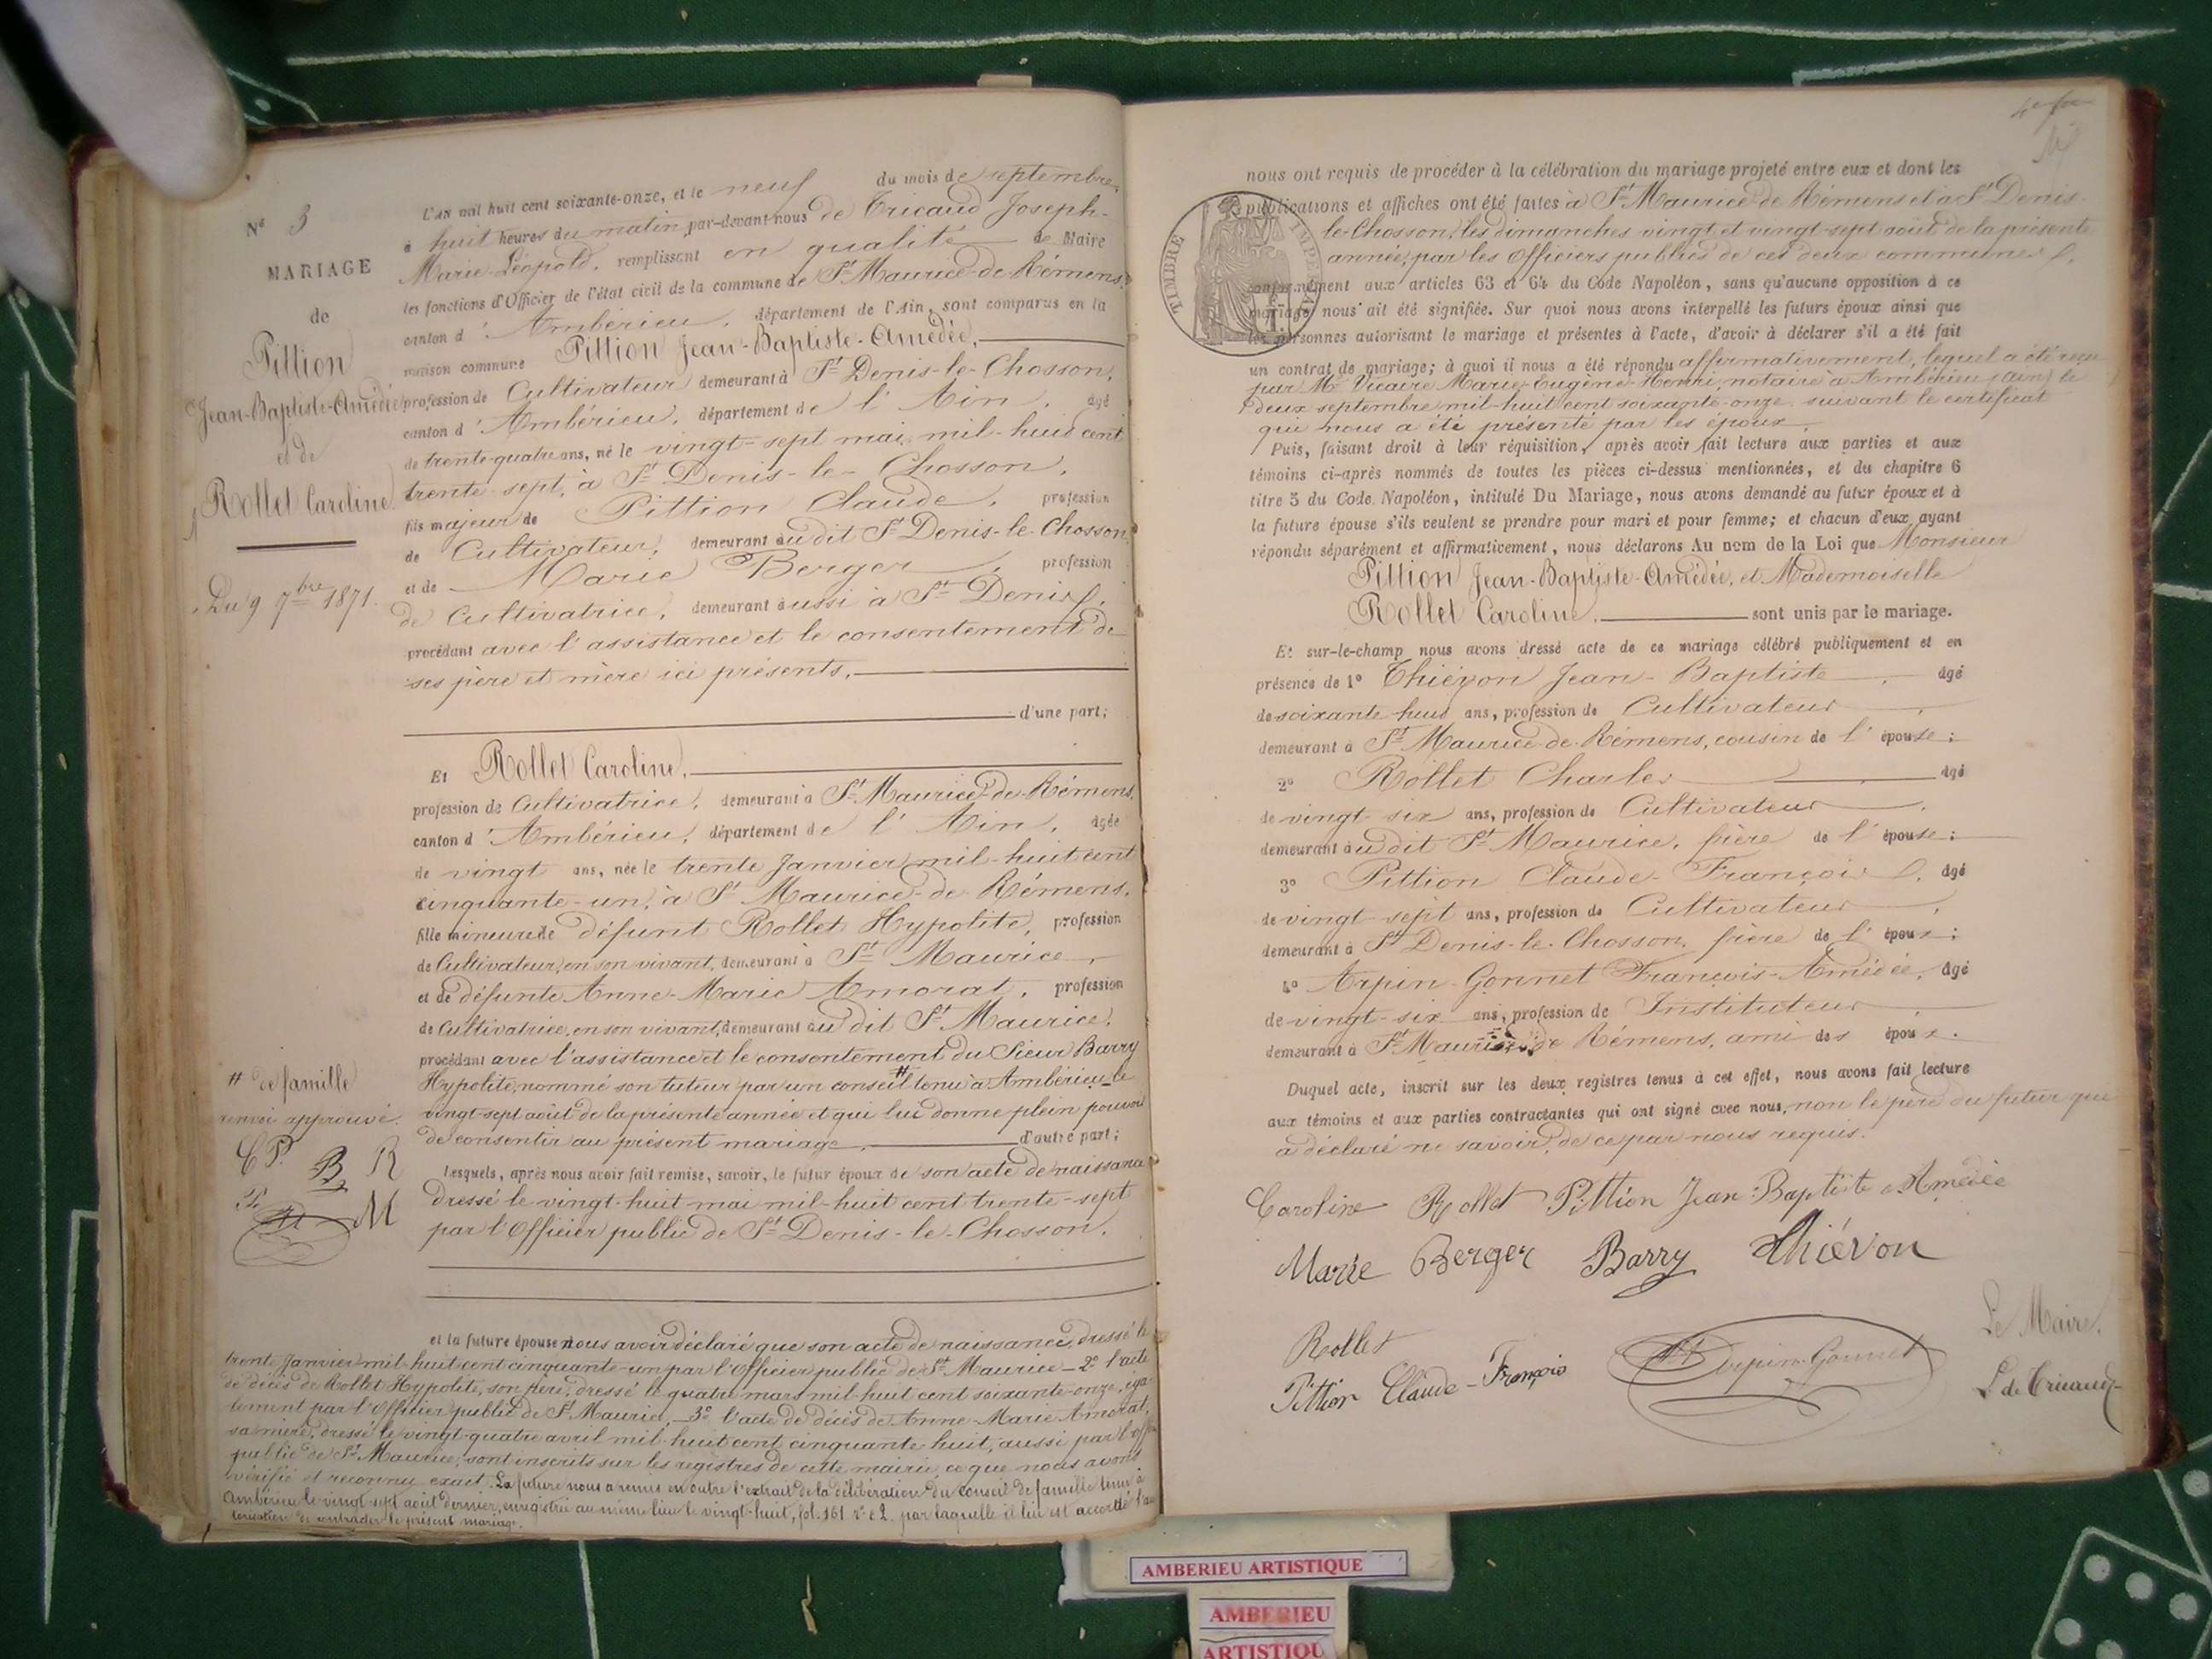 Nº 3
MARIAGE
de
Pittion
Jean-Baptiste-Amédée
et de
Rollet Caroline
Du 9 7bre 1871.
L'an mil huit cent soixante-onze, et le neuf du mois de septembre,
à huit heures du matin, par-devant nous de Tricaud Joseph-
Marie-Léopold, remplissant en qualité de Maire
les fonctions d'Officier de l'état civil de la commune de St Maurice-de-Rémens,
canton d'Ambérieu, département de l'Ain, sont comparus en la
maison commune Pittion Jean-Baptiste-Amédée,
profession de Cultivateur, demeurant à St Denis-le-Chosson,
canton d'Ambérieu, département de l'Ain, âgé
de trente-quatre ans, né le vingt-sept mai mil-huit cent
trente-sept, à St Denis-le-Chosson,
fils majeur de Pittion Claude, profession
de Cultivateur, demeurant au dit St Denis-le-Chosson,
et de Marie Berger, profession
de Cultivatrice, demeurant aussi à St Denis,
procédant avec l'assistance et le consentement de
ses père et mère ici présents,
d'une part;
Et Rollet Caroline,
profession de Cultivatrice, demeurant à St Maurice-de-Rémens,
canton d'Ambérieu, département de l'Ain, âgée
de vingt ans, née le trente Janvier mil-huit cent
cinquante-un, à St Maurice-de-Rémens,
fille mineure de défunt Rollet Hypolite, profession
de Cultivateur, en son vivant, demeurant à St Maurice,
et de défunte Anne-Marie Amorat, profession
de Cultivatrice, en son vivant, demeurant au dit St Maurice,
procédant avec l'assistance et le consentement du Sieur Barry
Hypolite, nommé son tuteur par un conseil # tenu à Ambérieu le
vingt-sept août de la présente année et qui lui donne plein pouvoir
de consentir au présent mariage, d'autre part;
# de famille
renvoi approuvé.
C P. B R
P. M
Lesquels, après nous avoir fait remise, savoir, le futur époux de son acte de naissance
dressé le vingt-huit mai mil-huit cent trente-sept
par l'Officier public de St Denis-le-Chosson.
et la future épouse nous avoir déclaré que son acte de naissance, dressé le
trente Janvier mil-huit cent cinquante-un par l'Officier public de St Maurice — 2º l'acte
de décès de Rollet Hypolite, son père, dressé le quatre mars mil-huit cent soixante-onze, éga-
lement par l'Officier public de St Maurice, — 3º l'acte de décès de Anne-Marie Amorat,
sa mère, dressé le vingt-quatre avril mil-huit cent cinquante huit, aussi par l'offr
public de St Maurice, sont inscrits sur les registres de cette mairie, ce que nous avons
vérifié et reconnu exact. La future nous a remis en outre l'extrait de la délibération du conseil de famille tenu à
Ambérieu le vingt-sept août dernier, enregistré au même lieu le vingt-huit, fol. 161 par laquelle il lui est accordé
de contracter le présent mariage.
nous ont requis de procéder à la célébration du mariage projeté entre eux et dont les
publications et affiches ont été faites à St Maurice-de-Rémens et à St Denis-
le-Chosson, les dimanches vingt et vingt-sept août de la présente
année, par les Officiers publics de ces deux communes,
conformément aux articles 63 et 64 du Code Napoléon, sans qu'aucune opposition à ce
mariage nous ait été signifiée. Sur quoi nous avons interpellé les futurs époux ainsi que
les personnes autorisant le mariage et présentes à l'acte, d'avoir à déclarer s'il a été fait
un contrat de mariage; à quoi il nous a été répondu affirmativement, lequel a été reçu
par Me Vicaire Marie-Eugène-Henri, notaire à Ambérieu (Ain) le
deux septembre mil-huit cent soixante-onze, suivant le certificat
qui nous a été présenté par les époux.
Puis, faisant droit à leur réquisition, après avoir fait lecture aux parties et aux
témoins ci-après nommés de toutes les pièces ci-dessus mentionnées, et du chapitre 6
titre 5 du Code Napoléon, intitulé Du Mariage, nous avons demandé au futur époux et à
la future épouse s'ils veulent se prendre pour mari et pour femme; et chacun d'eux ayant
répondu séparément et affirmativement, nous déclarons Au nom de la Loi que Monsieur
Pittion Jean-Baptiste-Amédée, et Mademoiselle
Rollet Caroline, sont unis par le mariage.
Et sur-le-champ nous avons dressé acte de ce mariage célébré publiquement et en
présence de 1º Thiévon Jean-Baptiste, âgé
de soixante huit ans, profession de Cultivateur,
demeurant à St Maurice-de-Rémens, cousin de l'épouse;
2º Rollet Charles, âgé
de vingt-six ans, profession de Cultivateur,
demeurant au dit St Maurice, frère de l'épouse;
3º Pittion Claude-François, âgé
de vingt-sept ans, profession de Cultivateur,
demeurant à St Denis-le-Chosson, frère de l'époux;
4º Arpin-Gonnet François-Amédée, âgé
de vingt-six ans, profession de Instituteur,
demeurant à St Maurice de Rémens, ami des époux.
Duquel acte, inscrit sur les deux registres tenus à cet effet, nous avons fait lecture
aux témoins et aux parties contractantes qui ont signé avec nous, non le père du futur qui
a déclaré ne savoir, de ce par nous requis.
Caroline Rollet Pittion Jean Baptiste Amédée
Marie Berger Barry Thiévon
Rollet
Pittion Claude-François Arpin-Gonnet
Le Maire,
L de Tricaud
TIMBRE IMPERIAL
AMBERIEU ARTISTIQUE
AMBERIEU
ARTISTIQU